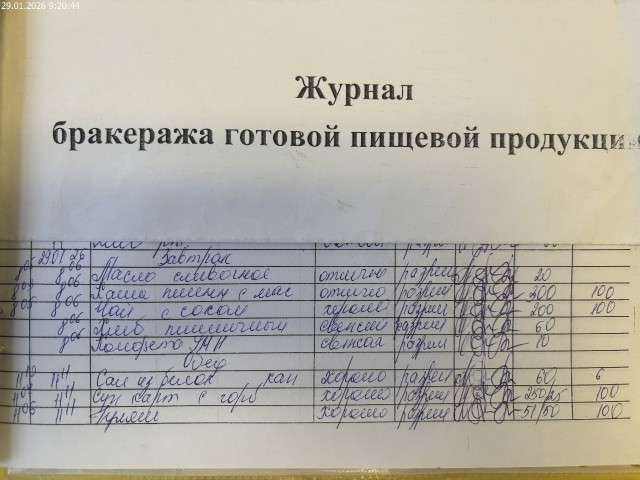 29.01.2026 9:20:44
Журнал
бракеража готовой пищевой продукции
29 01 26 Завтрак
8 06 Масло сливочное отлично разреш 20
8 06 Каша пшенн с мас отлично разреш 200 100
8 06 Чай с соком хорошо разреш 200 100
8 06 Хлеб пшеничный разреш 60
8 06 разреш 10
Обед
11 11 Сал из белок кап хорошо разреш 60 6
11 11 Суп карт с горб хорошо разреш 250/25 100
11 11 Гуляш хорошо разреш 51/50 100